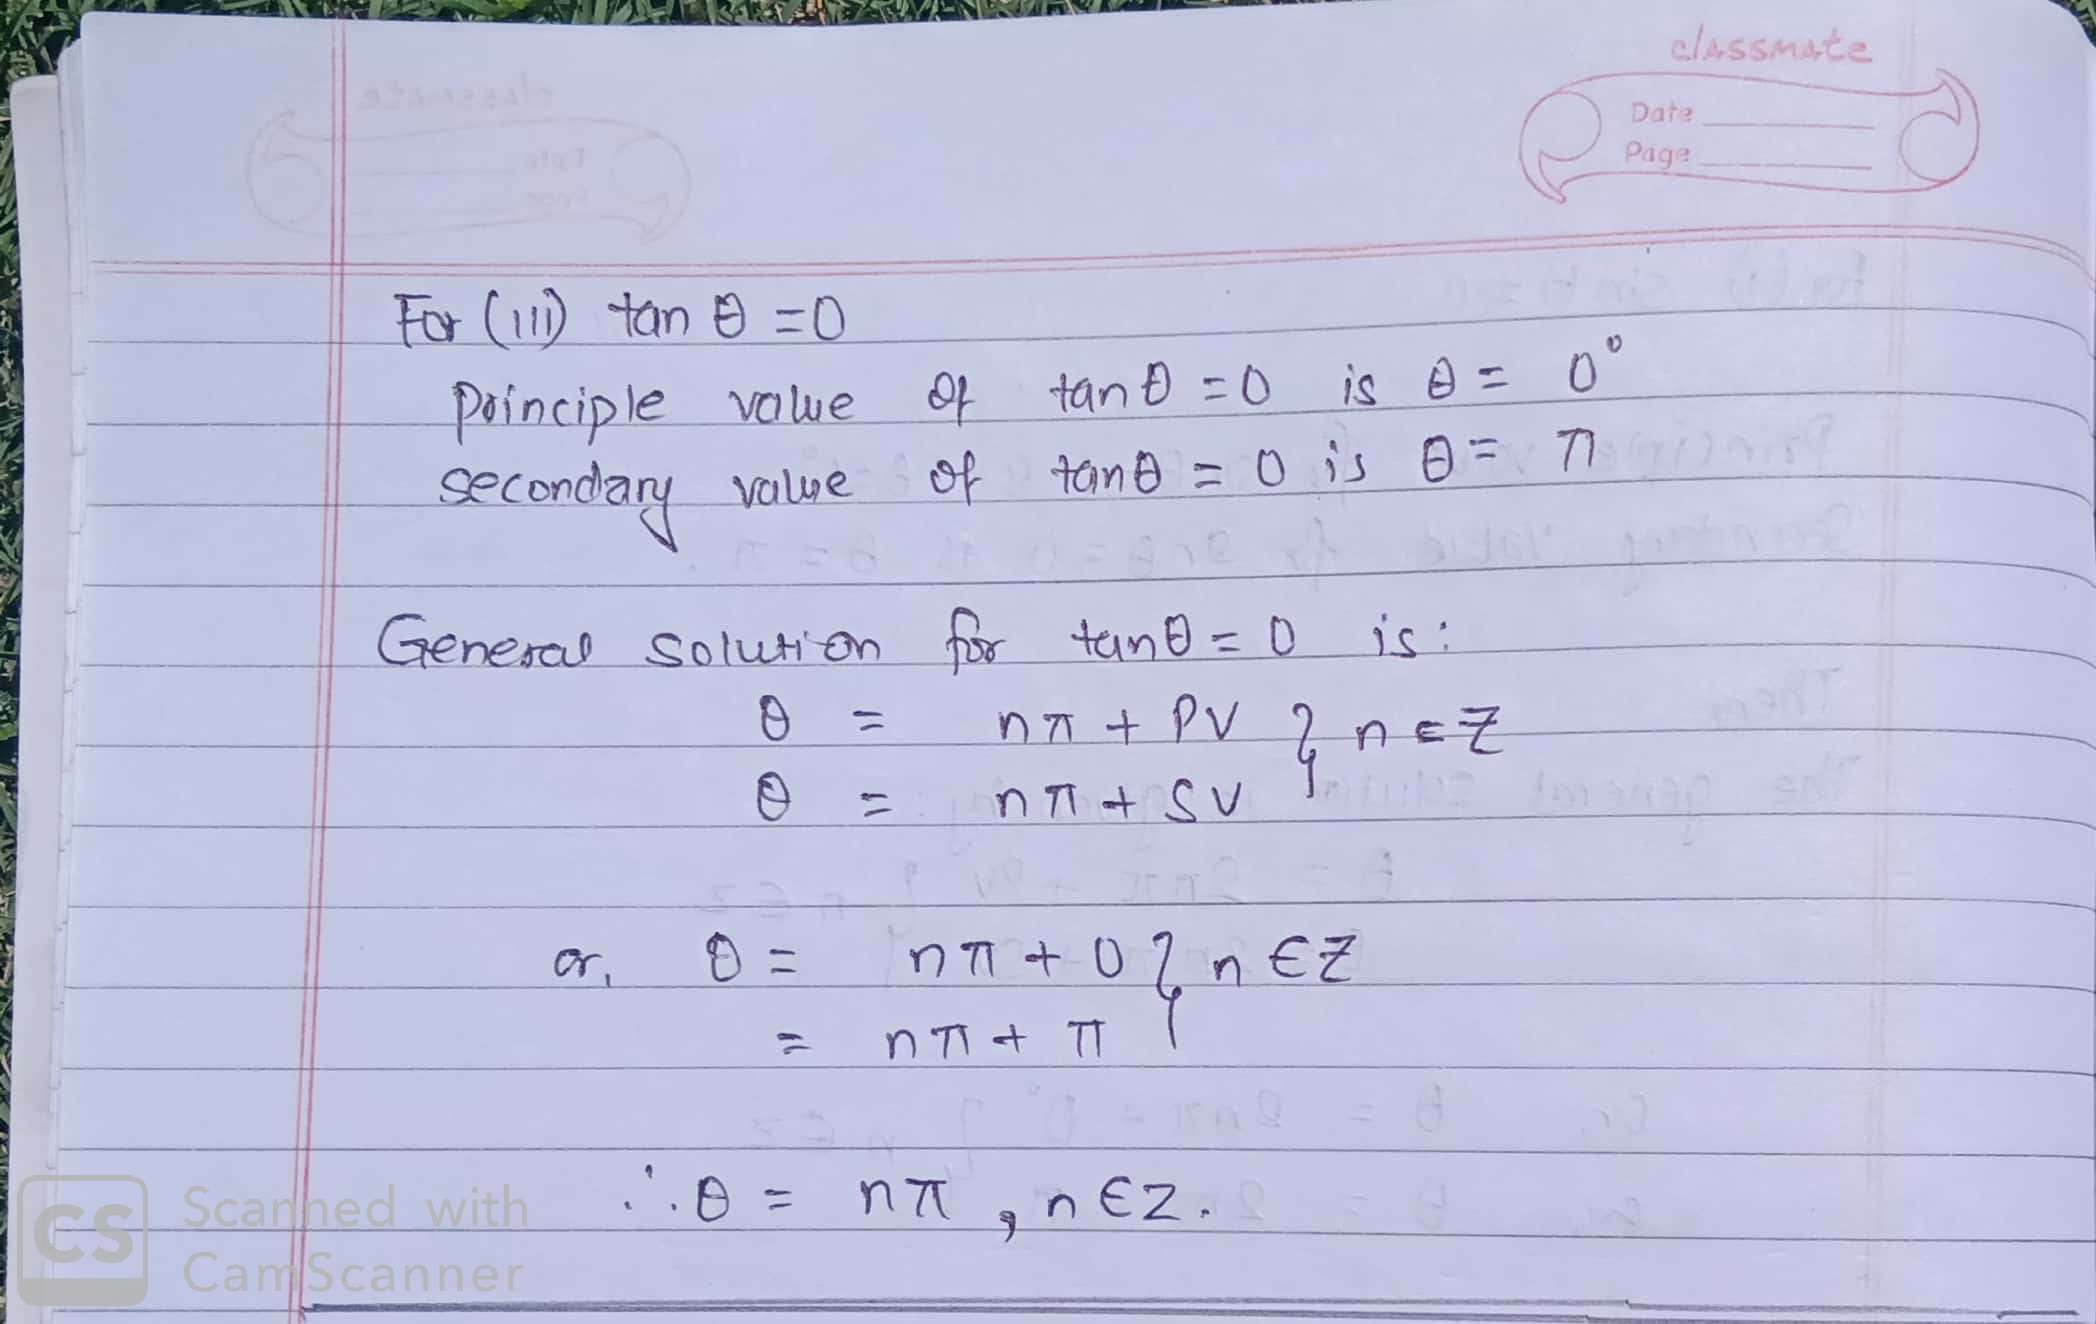 classmate
Date
Page
For (iii) tan θ = 0
Principle value of tan θ = 0 is θ = 0°
secondary value of tan θ = 0 is θ = π
General solution for tan θ = 0 is:
θ = nπ + PV } n ∈ Z
θ = nπ + SV
or, θ = nπ + 0 } n ∈ Z
= nπ + π
∴ θ = nπ , n ∈ Z.
CS Scanned with
CamScanner